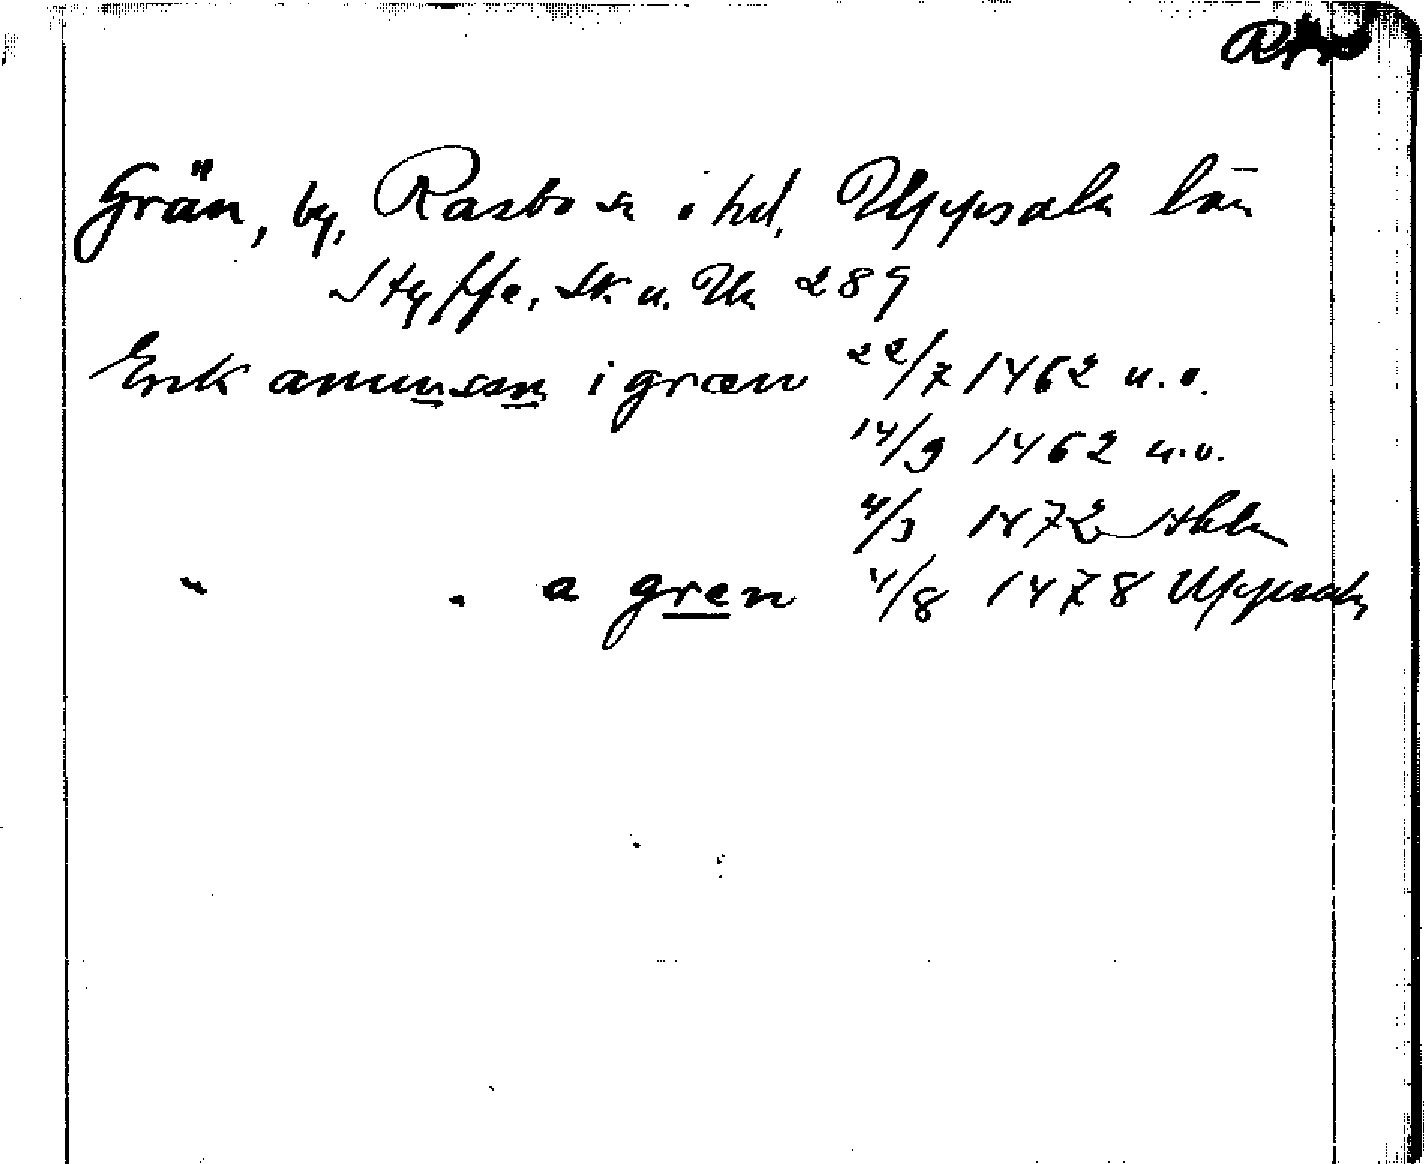 Grän, by, Rasbo sn o hd, Uppsala län
Styffe, Sk u. Un 289
Erik amunson i græn 22/7 1462 u.o.
14/9 1462 u.o.
4/3 1472 Sthlm
" " a gren 4/8 1478 Uppsala